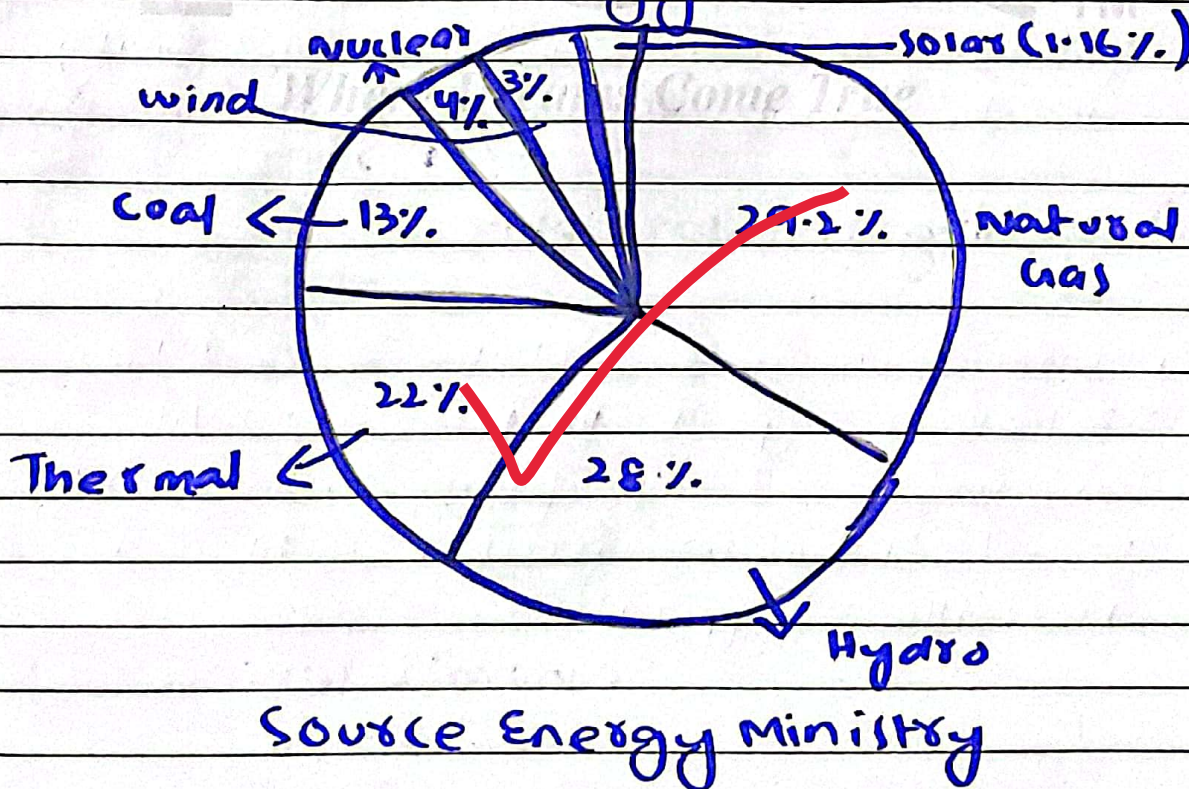 Nuclear
Solar (1.16%.)
wind
4%.
3%.
Coal
13%.
29.2%.
Natural
Gas
22%.
Thermal
28%.
Hydro
Source Energy Ministry